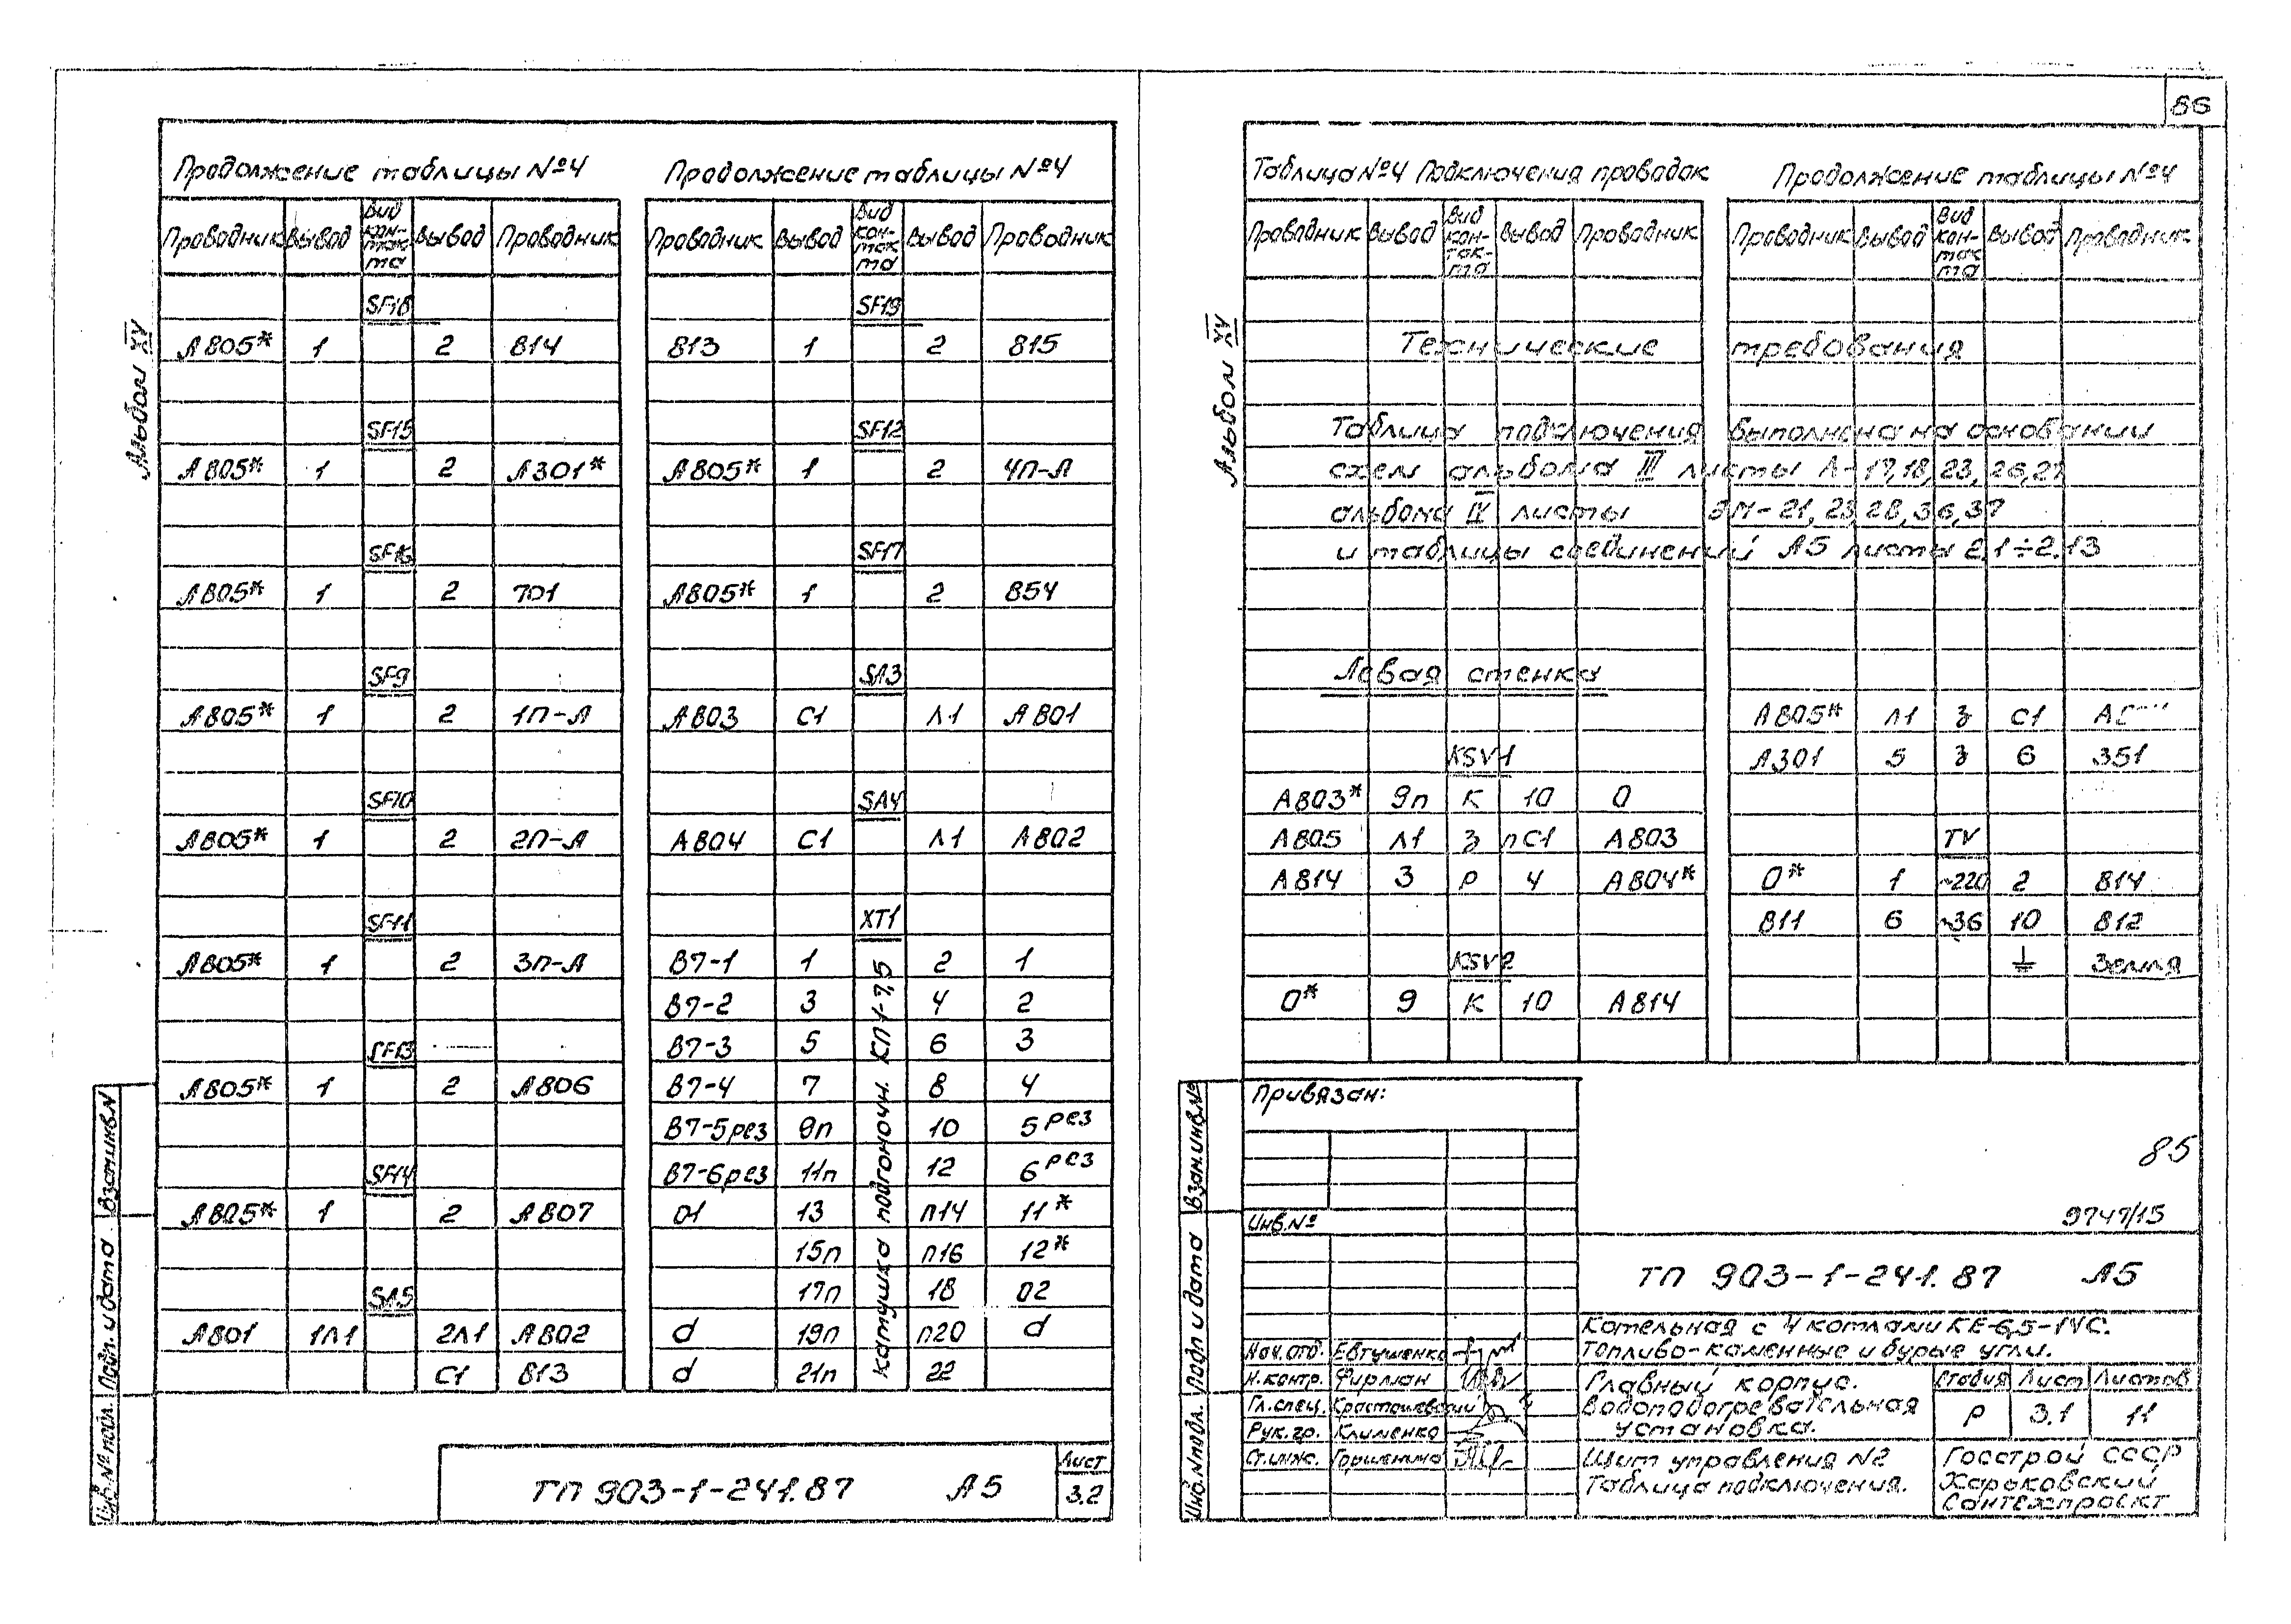 86
Продолжение таблицы №4
Проводник Вывод Вид кон-такта Вывод Проводник
SF18
А805* 1 2 814
SF15
А805* 1 2 А301*
SF16
А805* 1 2 701
SF9
А805* 1 2 1П-А
SF10
А805* 1 2 2П-А
SF11
А805* 1 2 3П-А
SF13
А805* 1 2 А806
SF14
А805* 1 2 А807
SA5
А801 1Л1 2Л1 А802
С1 813
Продолжение таблицы №4
Проводник Вывод Вид кон-такта Вывод Проводник
SF19
813 1 2 815
SF12
А805* 1 2 4П-А
SF17
А805* 1 2 854
SA3
А803 С1 Л1 А801
SA4
А804 С1 Л1 А802
XT1
В7-1 1 2 1
В7-2 3 4 2
В7-3 5 6 3
В7-4 7 8 4
В7-5рез 9п 10 5рез
В7-6рез 11п 12 6рез
01 13 п14 11*
15п п16 12*
17п 18 02
d 19п п20 d
d 21п 22
катушка подгоночн. КП1-7,5
Альбом XV
Взам.инв.N
Подп. и дата
Инв.№ подл.
ТП 903-1-241.87 А5
Лист
3.2
Таблица №4 Подключения проводок
Проводник Вывод Вид кон-так-та Вывод Проводник
Продолжение таблицы №4
Проводник Вывод Вид кон-так-та Вывод Проводник
Технические требования
Таблица подключения выполнена на основании
схем альбома III листы А-17,18,23,26,27
альбома IV листы ЭМ-21,23,28,36,37
и таблицы соединений А5 листы 2.1÷2.13
Левая стенка
KSV1
А803* 9п К 10 0
А805 Л1 З пС1 А803
А814 3 Р 4 А804*
KSV2
0* 9 К 10 А814
А805* Л1 З С1
А301 5 З 6 351
TV
0* 1 ~220 2 814
811 6 ~36 10 812
⏚ Земля
Альбом XV
Взам.инв.№
Подп и дата
Инв.N подл.
Привязан:
Инв.№
85
9747/15
ТП 903-1-241.87 А5
Котельная с 4 котлами КЕ-6,5-14С.
Топливо-каменные и бурые угли.
Нач.отд. Евтушенко
Н.контр. Фирман
Гл.спец.
Рук.гр. Клименко
Ст.инж.
Главный корпус.
Водоподогревательная
установка.
Стадия Лист Листов
Р 3.1 11
Щит управления №2
Таблица подключения.
Госстрой СССР
Харьковский
Сантехпроект